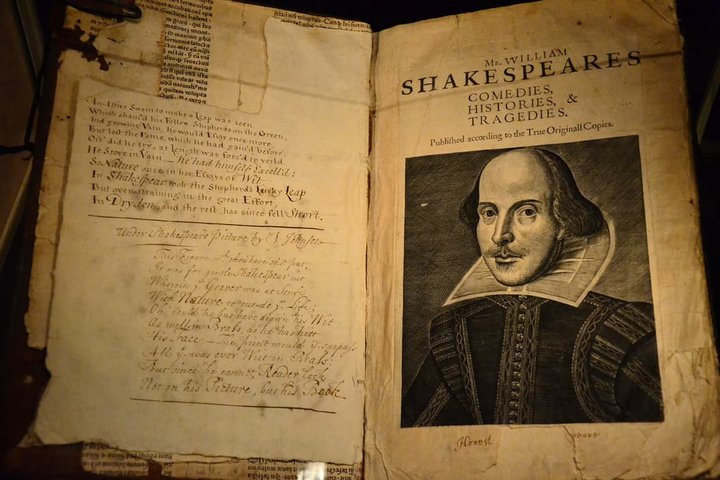 An Active Swain to make a Leap was seen
Which sham'd his Fellow Shepherds on the Green,
And growing Vain, he would Essay once more,
But lost the Fame, which he had gain'd before;
Oft' did he try, at Length was forc'd to yeild
He Strove in Vain, he had himself Excell'd:
So Nature once in her Essays of Wit,
In Shakespear took the Shepherd's Lucky Leap
But over-straining in the great Effort,
In Dryden, and the rest, has since fell Short.
Under Shakespears Picture by Johnson
This Figure yt thou here seest put,
It was for gentle Shakespear cut
Wherein ye Graver was at Strife
With Nature to out-do ye Life;
Oh, could he but have drawn his Wit
As well in Brass, as he has hitt
His Face
All yt was ever Writ in Brass;
But since he cannot, Reader look
Not on his Picture, but his Book
Mr. WILLIAM
SHAKESPEARES
COMEDIES,
HISTORIES, &
TRAGEDIES.
Published according to the True Originall Copies.